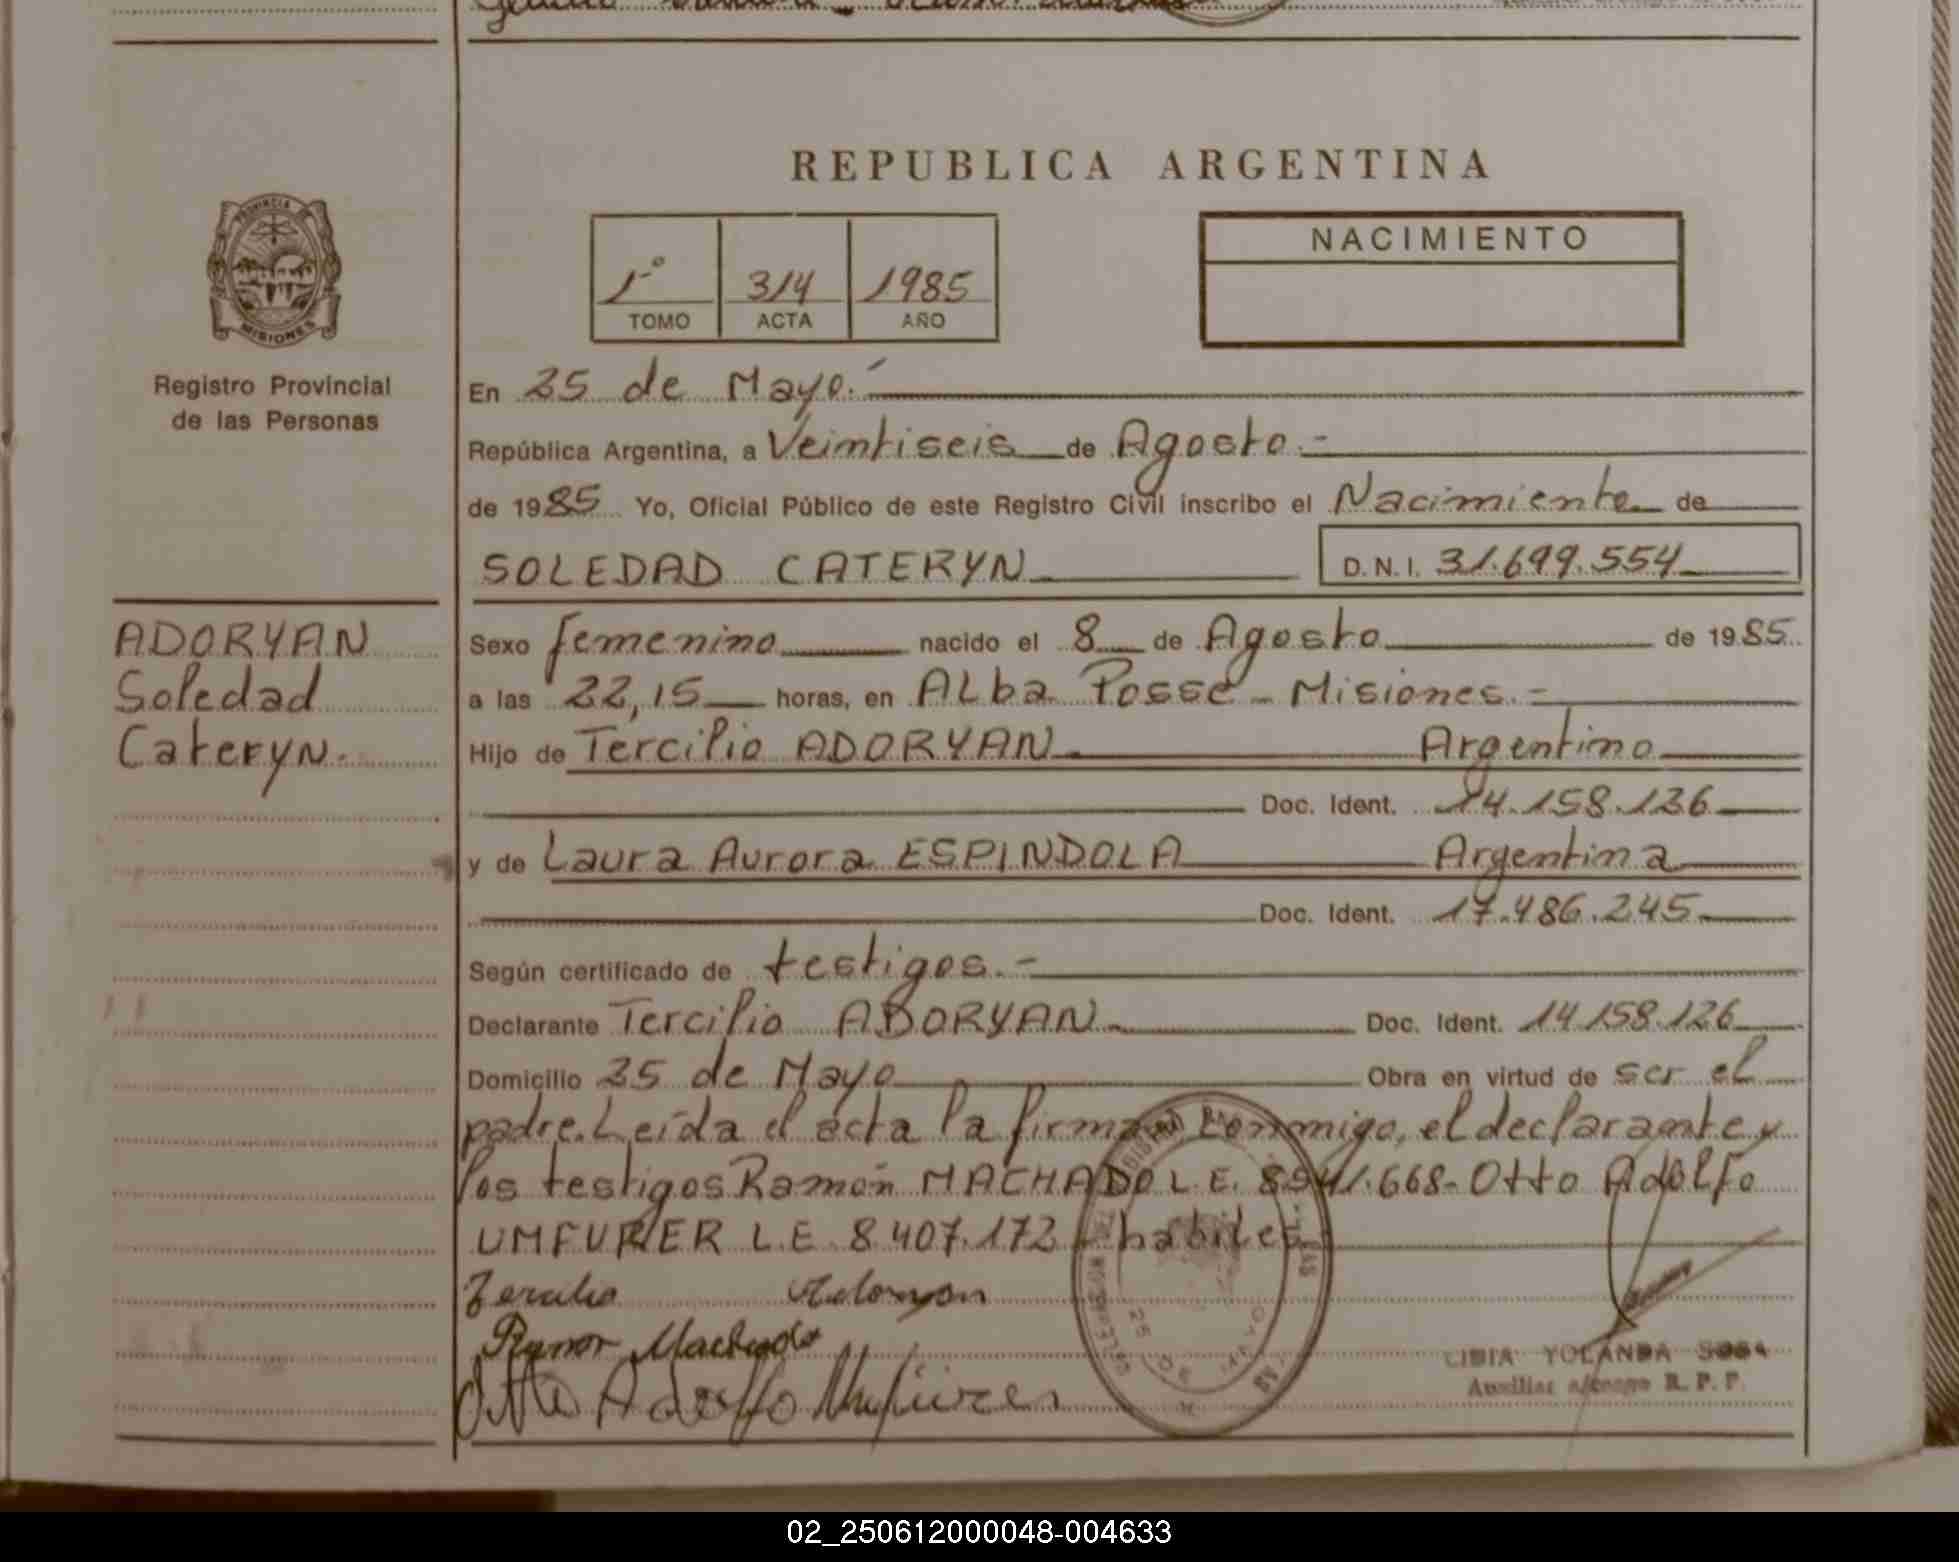 REPUBLICA ARGENTINA
PROVINCIA DE
MISIONES
Registro Provincial
de las Personas
1º 314 1985
TOMO ACTA AÑO
NACIMIENTO
En 25 de Mayo.
República Argentina, a Veintiseis de Agosto.-
de 1985 Yo, Oficial Público de este Registro Civil inscribo el Nacimiento de
SOLEDAD CATERYN D.N.I. 31.699.554
ADORYAN
Soledad
Cateryn.
Sexo femenino nacido el 8 de Agosto de 1985
a las 22,15 horas, en Alba Posse - Misiones.-
Hijo de Tercilio ADORYAN Argentino
Doc. Ident. 14.158.126
y de Laura Aurora ESPINDOLA Argentina
Doc. Ident. 17.486.245
Según certificado de testigos.-
Declarante Tercilio ADORYAN Doc. Ident. 14.158.126
Domicilio 25 de Mayo Obra en virtud de ser el
padre. Leída el acta la firman conmigo, el declarante y
los testigos Ramón MACHADO L.E. 8541.668- Otto Adolfo
UMFURER L.E. 8 407.172 habiles
Tercilio Adoryan
Ramon Machado
Otto Adolfo
25 DE MAYO
LIDIA YOLANDA SOSA
Auxiliar a/cargo R. P. P.
02_250612000048-004633